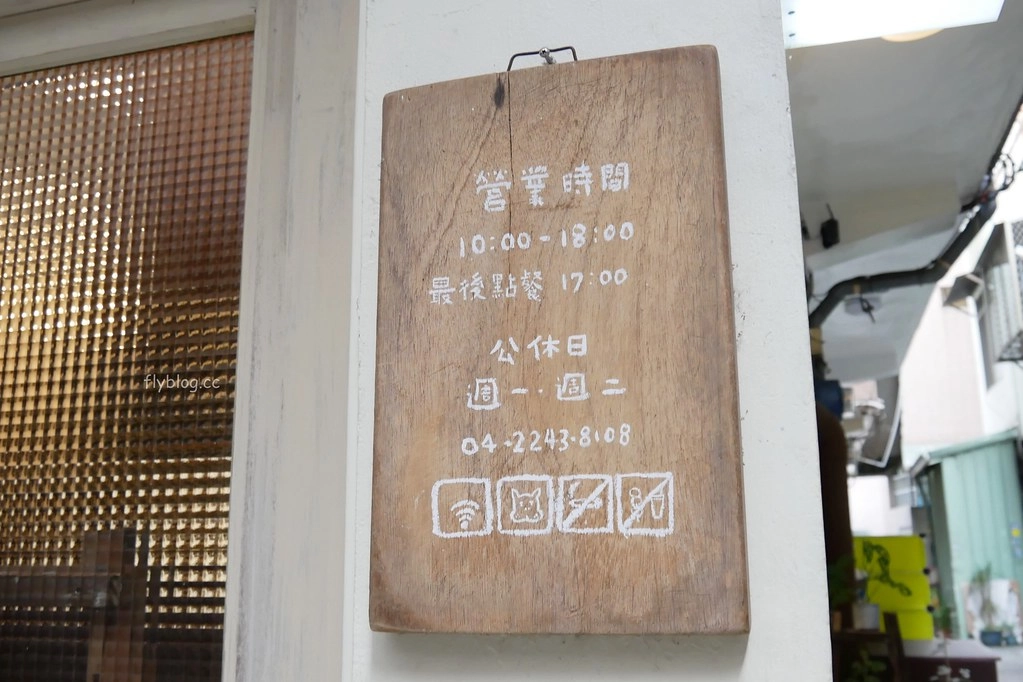 營業時間
10:00-18:00
最後點餐 17:00
公休日
週一.週二
04-2243-8108
flyblog.cc